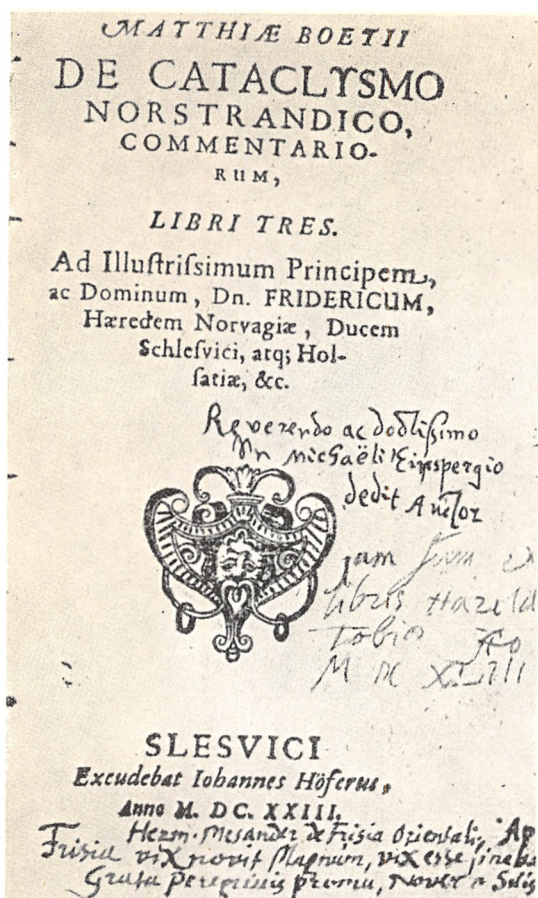 MATTHIÆ BOETII
DE CATACLYSMO
NORSTRANDICO,
COMMENTARIO-
RUM,
LIBRI TRES.
Ad Illuſtriſsimum Principem,
ac Dominum, Dn. FRIDERICUM,
Hæredem Norvagiæ, Ducem
Schleſvici, atq; Hol-
ſatiæ, &c.
Reverendo ac doctiſſimo
Dn Michaëli
dedit Auctor
jam ſum ex
libris Harald
M DC XLIII
SLESVICI
Excudebat Iohannes Höferus,
Anno M. DC. XXIII.
Herm. Mesander de Frisia Orientali,
Frisia vix novit Magnum, vix esse
Grata